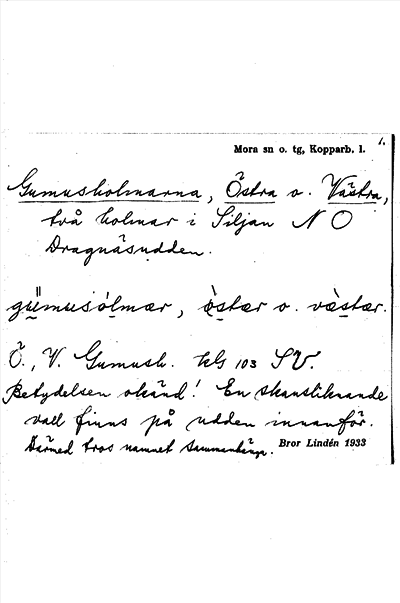 Mora sn o. tg, Kopparb. l.
1.
Gumusholmarna, Östra o. Västra,
två holmar i Siljan N O
Dragnäsudden.
gümusòlmær, òstær o. væstær.
Ö., V. Gumush. kbl 103 SV.
Betydelsen okänd! En skansliknande
vall finns på udden innanför.
Därmed tros namnet sammanhänga.
Bror Lindén 1933